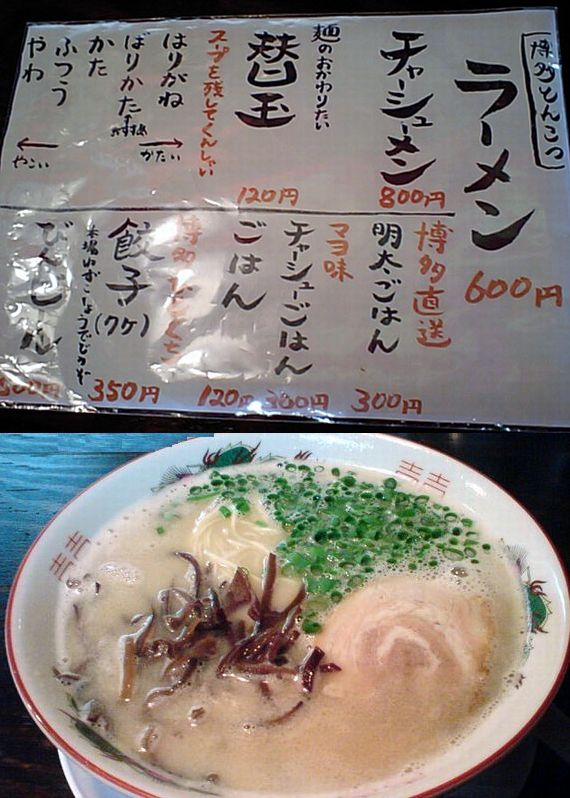 博多とんこつ
ラーメン
600円
チャーシューメン
800円
麺のおかわりたい
替玉
120円
スープを残してくんしゃい
はりがね
ばりかた
かた
ふつう
やわ
かたい
やこい
博多直送
明太ごはん
300円
マヨ味
チャーシューごはん
300円
ごはん
120円
博多ひとくち
餃子
(7ケ)
350円
本場ゆずこしょうでどうぞ
びんビール
500円